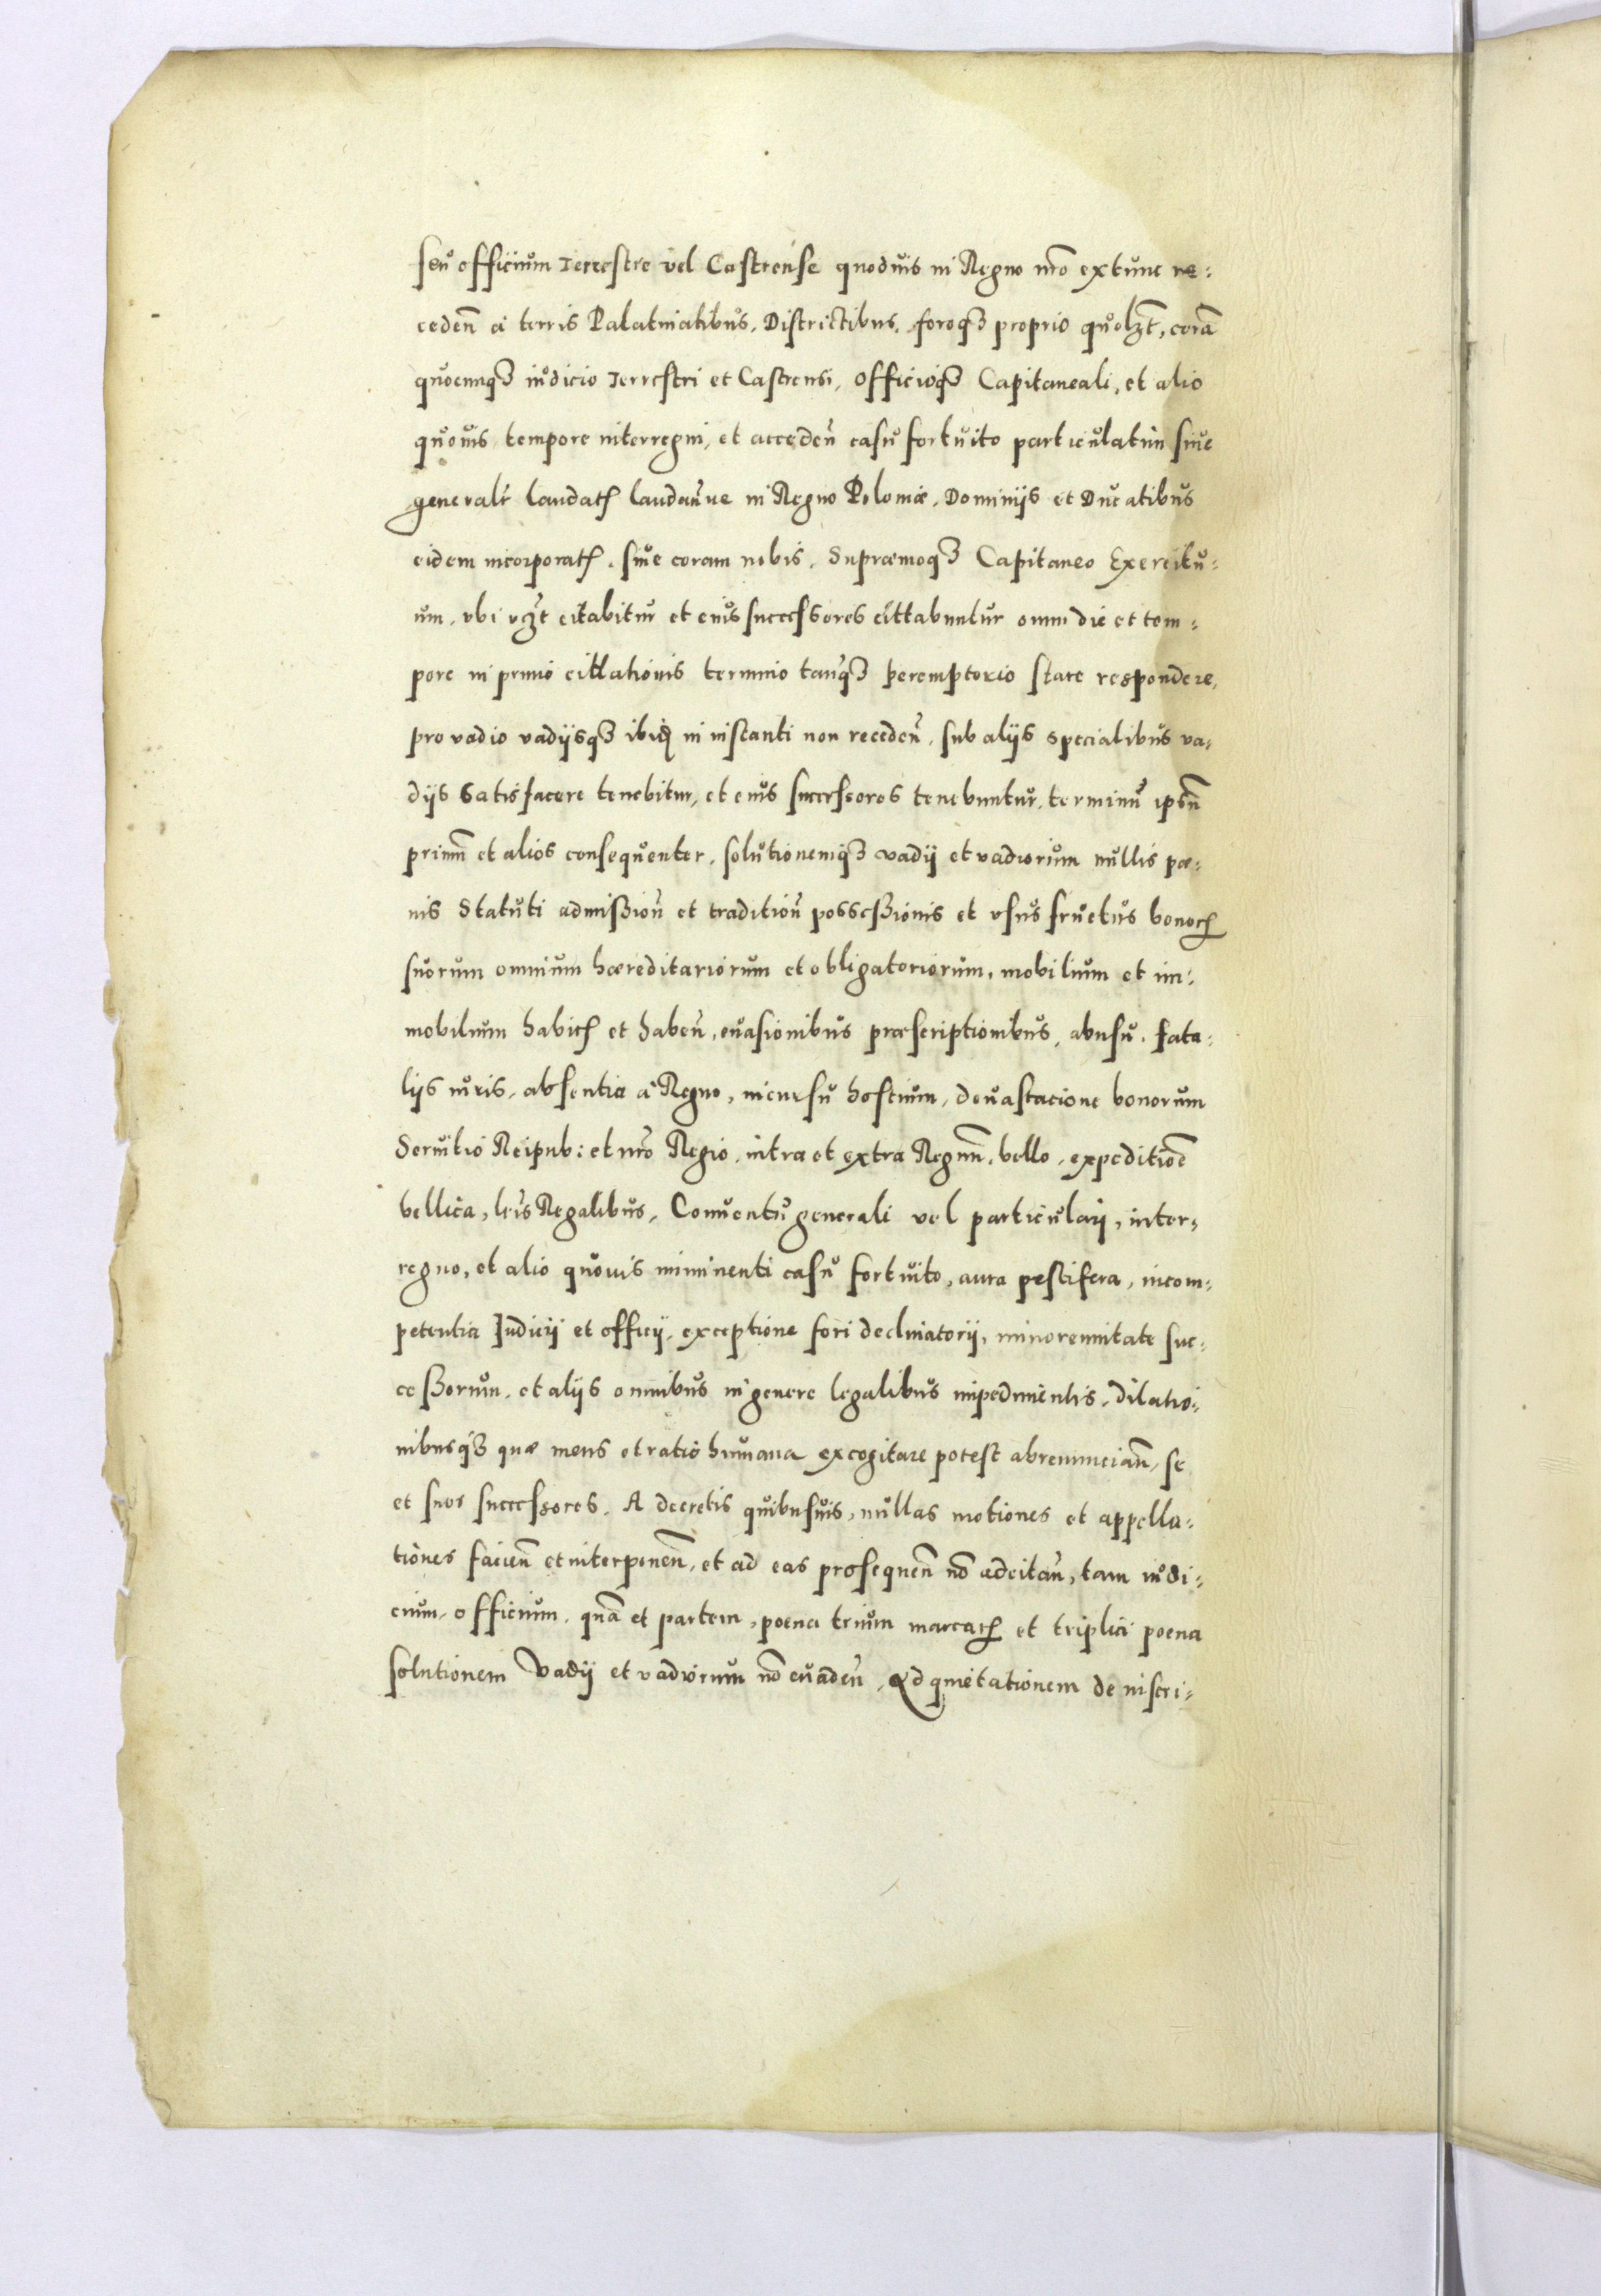 seu officium Terrestre vel Castrense quoduis in Regno nr̃o extunc re⸗
ceden̄ a terris Palatinatibus, Districtibus, foroq́ꝫ proprio quolꝫt, corā
quocunqꝫ iudicio Terrestri et Castrensi, officioqꝫ Capitaneali, et alio
quouis tempore interregni, et acceden̄ casu fortuito particulatim siue
generalr̃ laudatꝭ laudan̄ue in Regno Poloniæ, Dominijs et Ducatibus
eidem incorporatꝭ, siue coram nobis, Supræmoqꝫ Capitaneo Exercitu⸗
um, vbi vꝫt citabitur et eius successores cittabuntur omni die et tem⸗
pore in primo cittationis termino tanq̄ꝫ peremptorio stare respondere,
pro vadio vadijsqꝫ ibid̄ in instanti non receden̄, sub alijs specialibus va⸗
dijs satisfacere tenebitur, et eius successores tenebuntur, terminū ipsū
primū et alios consequenter, solutionemqꝫ vadij et vadiorum nullis pœ⸗
nis Statuti admißion̄ et tradition̄ posseßionis et vsus fructus bonoꝝ
suorum omnium hæreditariorum et obligatoriorum, mobilium et im⸗
mobilium habitꝭ et haben̄, euasionibus præscriptionibus, abusu, fata⸗
lijs iuris, absentia a Regno, incursu hostium, deuastacione bonorum
Seruitio Reipub: et nr̃o Regio, intra et extra Regnū, bello, expeditiōe
bellica, lr̃is Regalibus, Conuentu generali vel particulari, inter⸗
regno, et alio quouis imminenti casu fortuito, aura pestifera, incom⸗
petentia Iudicij et officij, exceptione fori declinatorij, minorennitate suc⸗
ceßorum, et alijs omnibus in genere legalibus impedimentis, dilatio⸗
nibusqꝫ quæ mens et ratio humana excogitare potest abrenuncian̄, se
et suos successores. A decretis quibusuis, nullas motiones et appella⸗
tiones facien̄ et interponen̄, et ad eas prosequen̄ nō adcitan̄, tam iudi⸗
cium, officium, quā et partem, poena trium marcaꝝ et triplici poena
solutionem Vadij et vadiorum nō euaden̄, Ad quietationem de inscri⸗